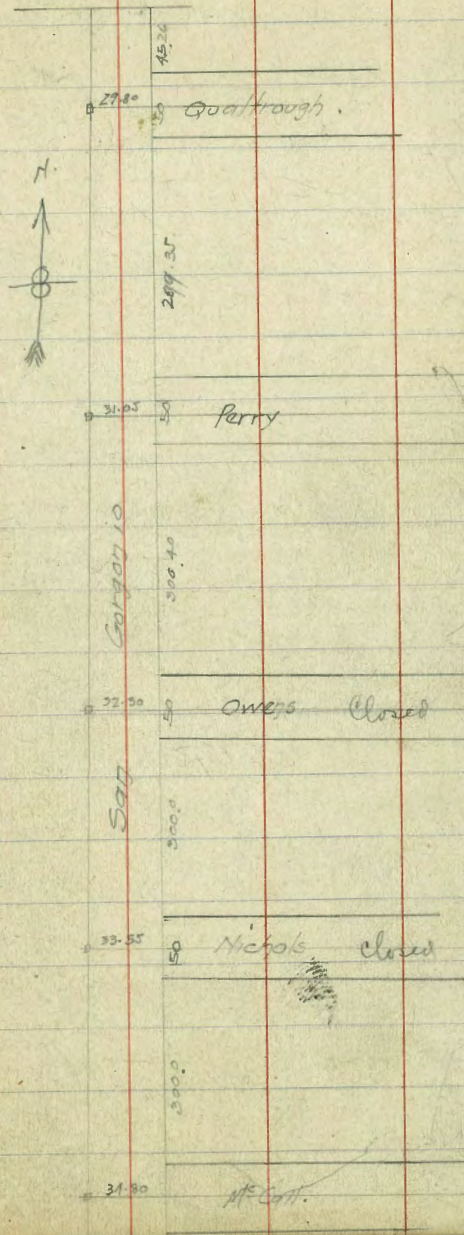 45.26
29.80 50 Qualtrough.
N
299.35
31.05 50 Perry
San Gorgonio
300.40
32.50 50 Owens Closed
300.0
33.55 50 Nichols Closed
300.0